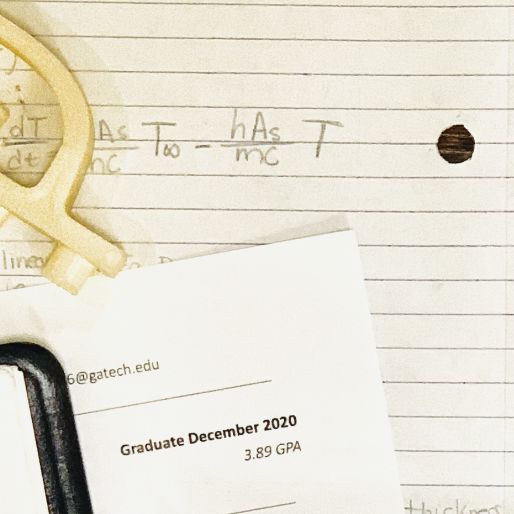 dT As T∞ - hAs T
dt mc mc
6@gatech.edu
Graduate December 2020
3.89 GPA
thickness